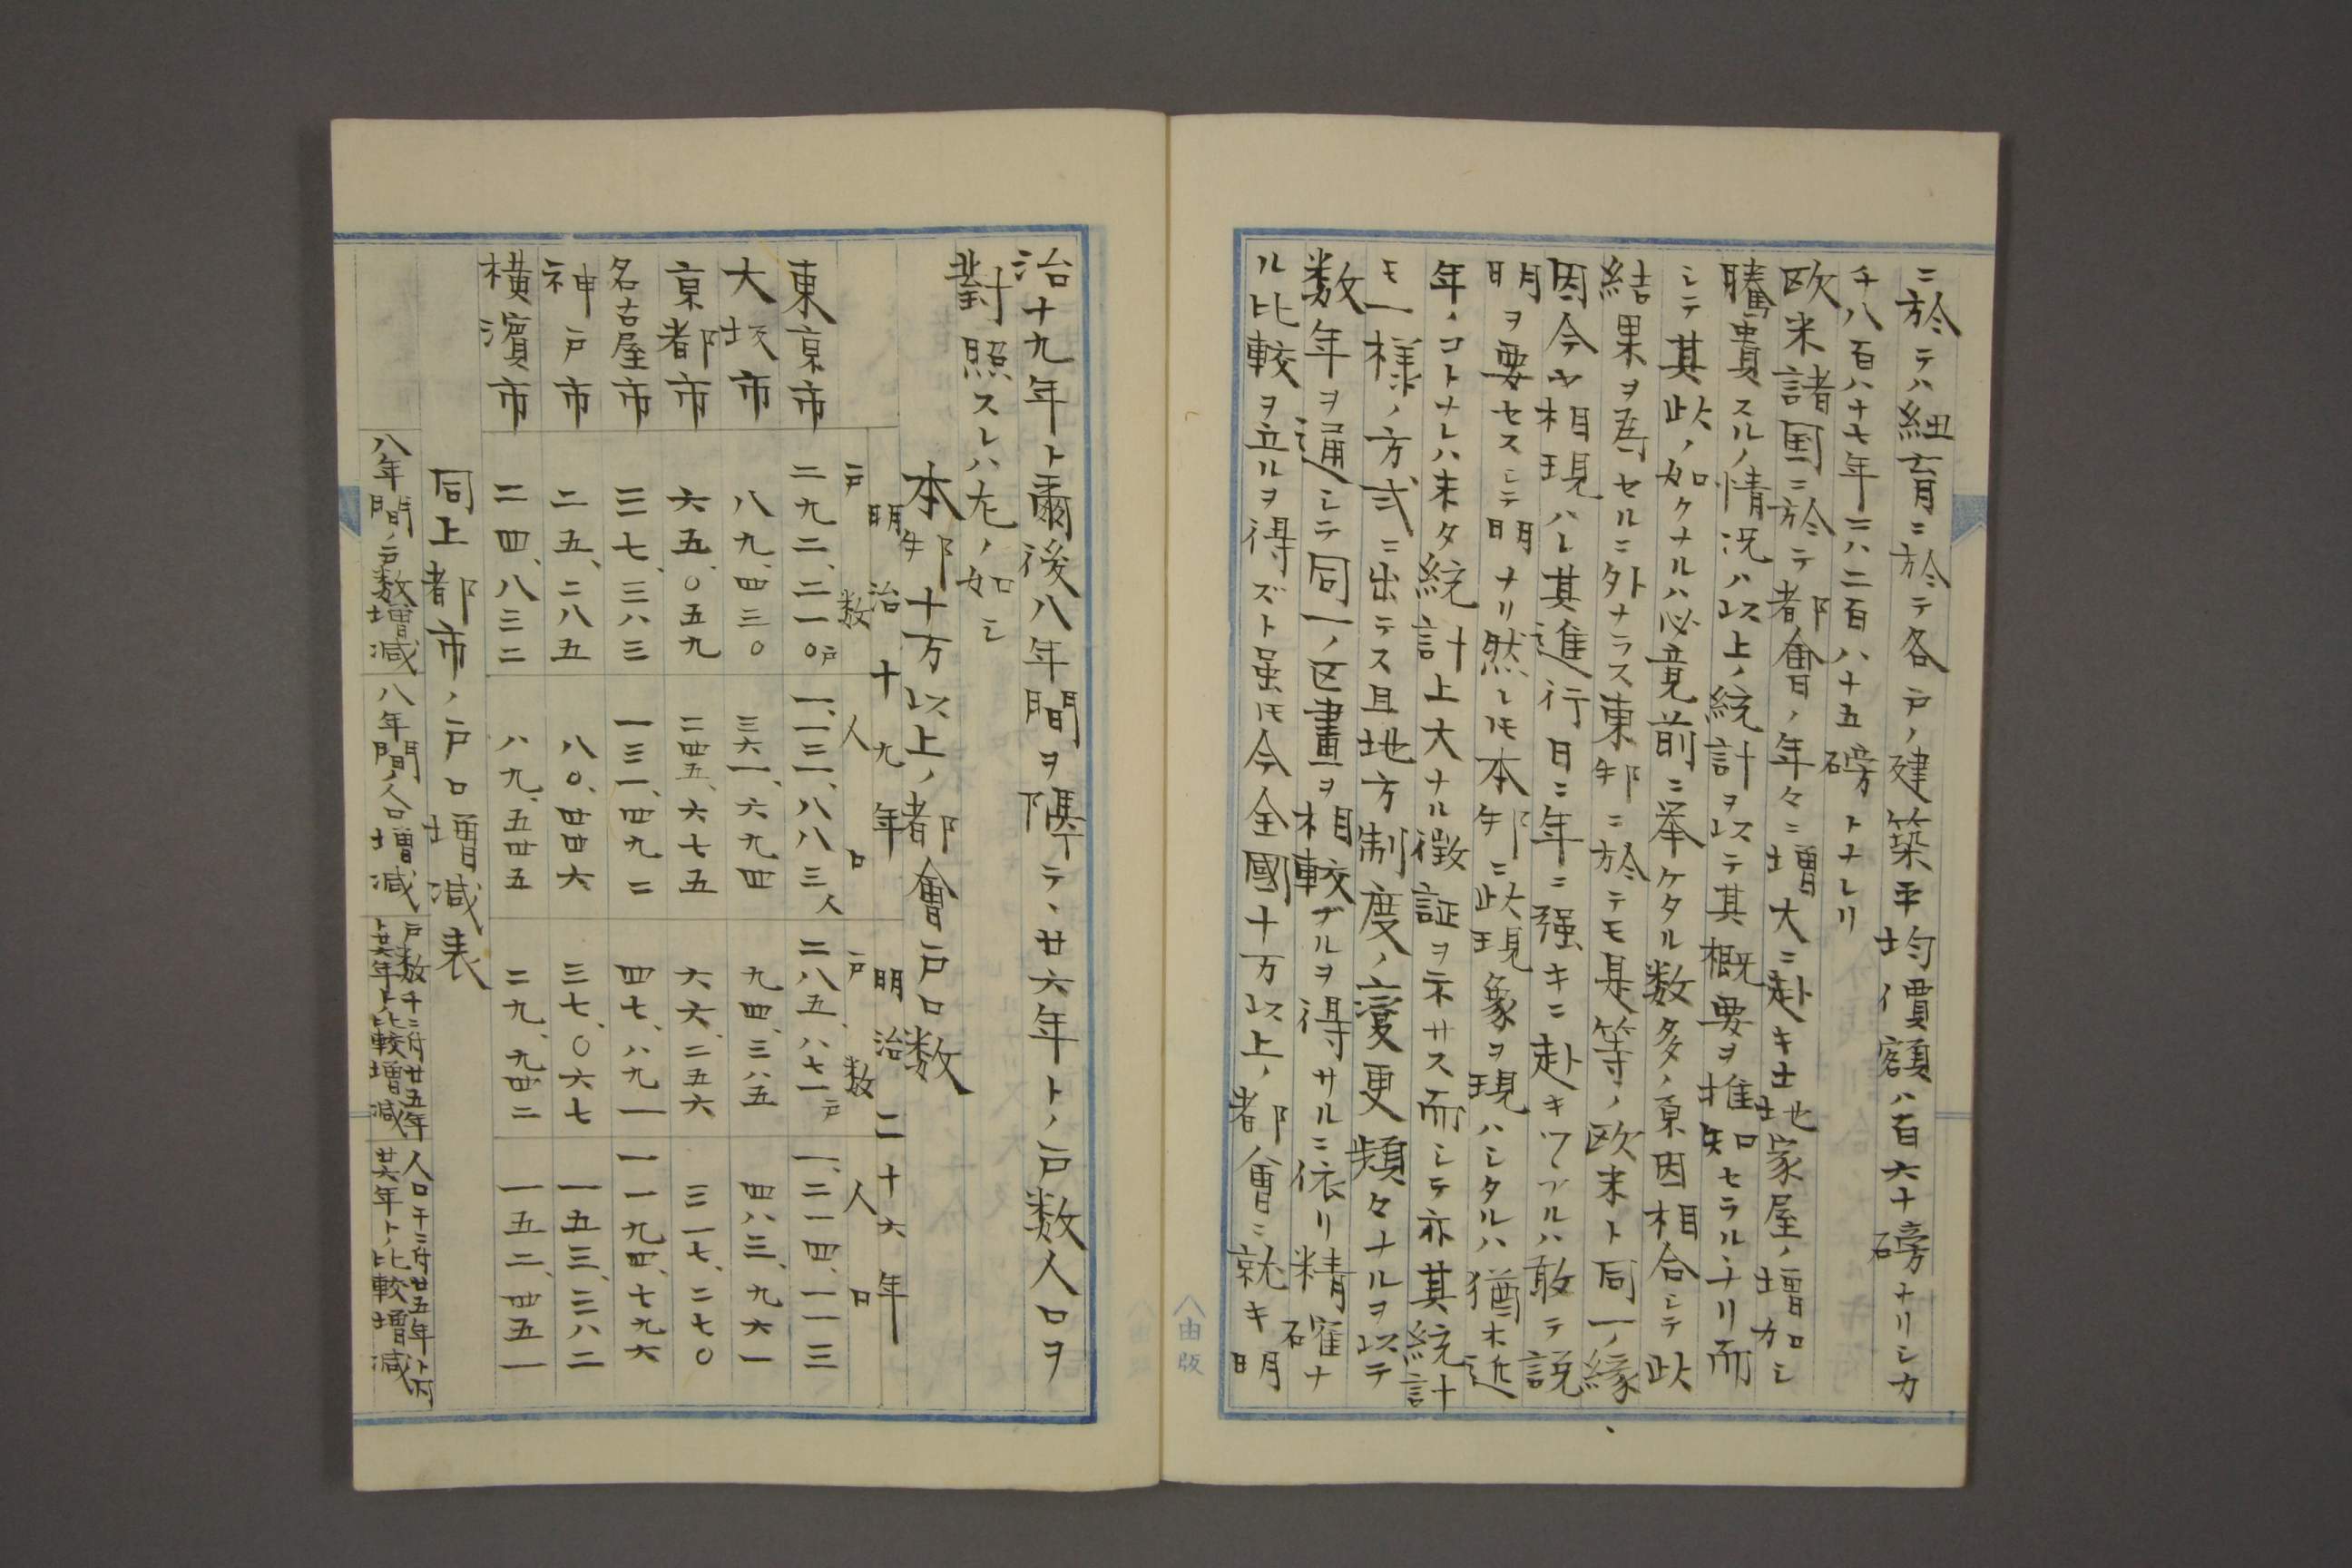 ニ於テハ紐育ニ於テ各戸ノ建築平均價額ハ百六十磅ナリシカ
千八百八十七年ニハ二百八十五磅トナレリ
欧米諸国ニ於テ都會ノ年々ニ増大ニ赴キ土地家屋ノ増加シ
騰貴スルノ情況ハ以上ノ統計ヲ以テ其概要ヲ推知セラルヽナリ而
シテ其此ノ如クナルハ必竟前ニ挙ケタル数多ノ原因相合シテ此
結果ヲ為セルニ外ナラス東邦ニ於テモ是等ノ欧米ト同一ノ縁
因今ヤ相現ハレ其進行日ニ年ニ強キニ赴キツヽアルハ敢テ説
明ヲ要セスシテ明ナリ然レ𪜈本邦ニ此現象ヲ現ハシタルハ猶ホ近
年ノコトナレハ未タ統計上大ナル徴証ヲ示サス而シテ亦其統計
モ一様ノ方式ニ出テス且地方制度ノ変更頻々ナルヲ以テ
数年ヲ通シテ同一ノ区畫ヲ相較ブルヲ得サルニ依リ精確ナ
ル比較ヲ立ルヲ得ズト虽𪜈今全國十万以上ノ都會ニ就キ明
治十九年ト爾後八年間ヲ隔テヽ廿六年トノ戸数人口ヲ
對照スレハ左ノ如シ
本邦十万以上ノ都會戸口数
明治十九年 明治二十六年
戸数 人口 戸数 人口
東京市 二九二、二一〇戸 一、一三一、八八三人 二八五、八七一戸 一、二一四、一一三
大坂市 八九、四三〇 三六一、六九四 九四、三八五 四八三、九六一
京都市 六五、〇五九 二四五、六七五 六六、二五六 三一七、二七〇
名古屋市 三七、三八三 一三一、四九二 四七、八九一 一九四、七九六
神戸市 二五、二八五 八〇、四四六 三七、〇六七 一五三、三八二
横濱市 二四、八三二 八九、五四五 二九、九四二 一五二、四五一
同上都市ノ戸口増減表
八年間ノ戸数増減 八年間ノ人口増減 戸数千ニ付廿五年ト廿六年トノ比較増減 人口千ニ付廿五年ト廿六年トノ比較増減